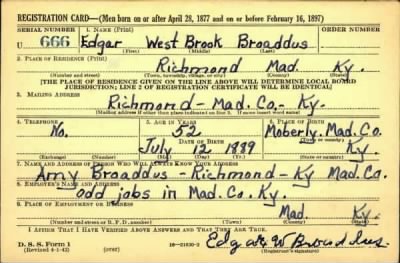 REGISTRATION CARD—(Men born on or after April 28, 1877 and on or before February 16, 1897)
SERIAL NUMBER 1. NAME (Print) ORDER NUMBER
U 666 Edgar West Brook Broaddus
(First) (Middle) (Last)
2. PLACE OF RESIDENCE (Print)
Richmond Mad. Ky.
(Number and street) (Town, township, village, or city) (County) (State)
[THE PLACE OF RESIDENCE GIVEN ON THE LINE ABOVE WILL DETERMINE LOCAL BOARD
JURISDICTION; LINE 2 OF REGISTRATION CERTIFICATE WILL BE IDENTICAL]
3. MAILING ADDRESS
Richmond - Mad. Co. - Ky.
[Mailing address if other than place indicated on line 2. If same insert word same]
4. TELEPHONE 5. AGE IN YEARS 6. PLACE OF BIRTH
No. 52 Moberly. Mad. Co.
DATE OF BIRTH (Town or county)
July 12 1889 Ky.
(Exchange) (Number) (Mo.) (Day) (Yr.) (State or country)
7. NAME AND ADDRESS OF PERSON WHO WILL ALWAYS KNOW YOUR ADDRESS
Amy Broaddus - Richmond - Ky Mad. Co.
8. EMPLOYER'S NAME AND ADDRESS
Odd jobs in Mad. Co. Ky.
9. PLACE OF EMPLOYMENT OR BUSINESS
Mad. Ky.
(Number and street or R. F. D. number) (Town) (County) (State)
I AFFIRM THAT I HAVE VERIFIED ABOVE ANSWERS AND THAT THEY ARE TRUE.
D. S. S. Form 1
(Revised 4-1-42) (over) 16—21630-2 Edgar W Broaddus
(Registrant's signature)